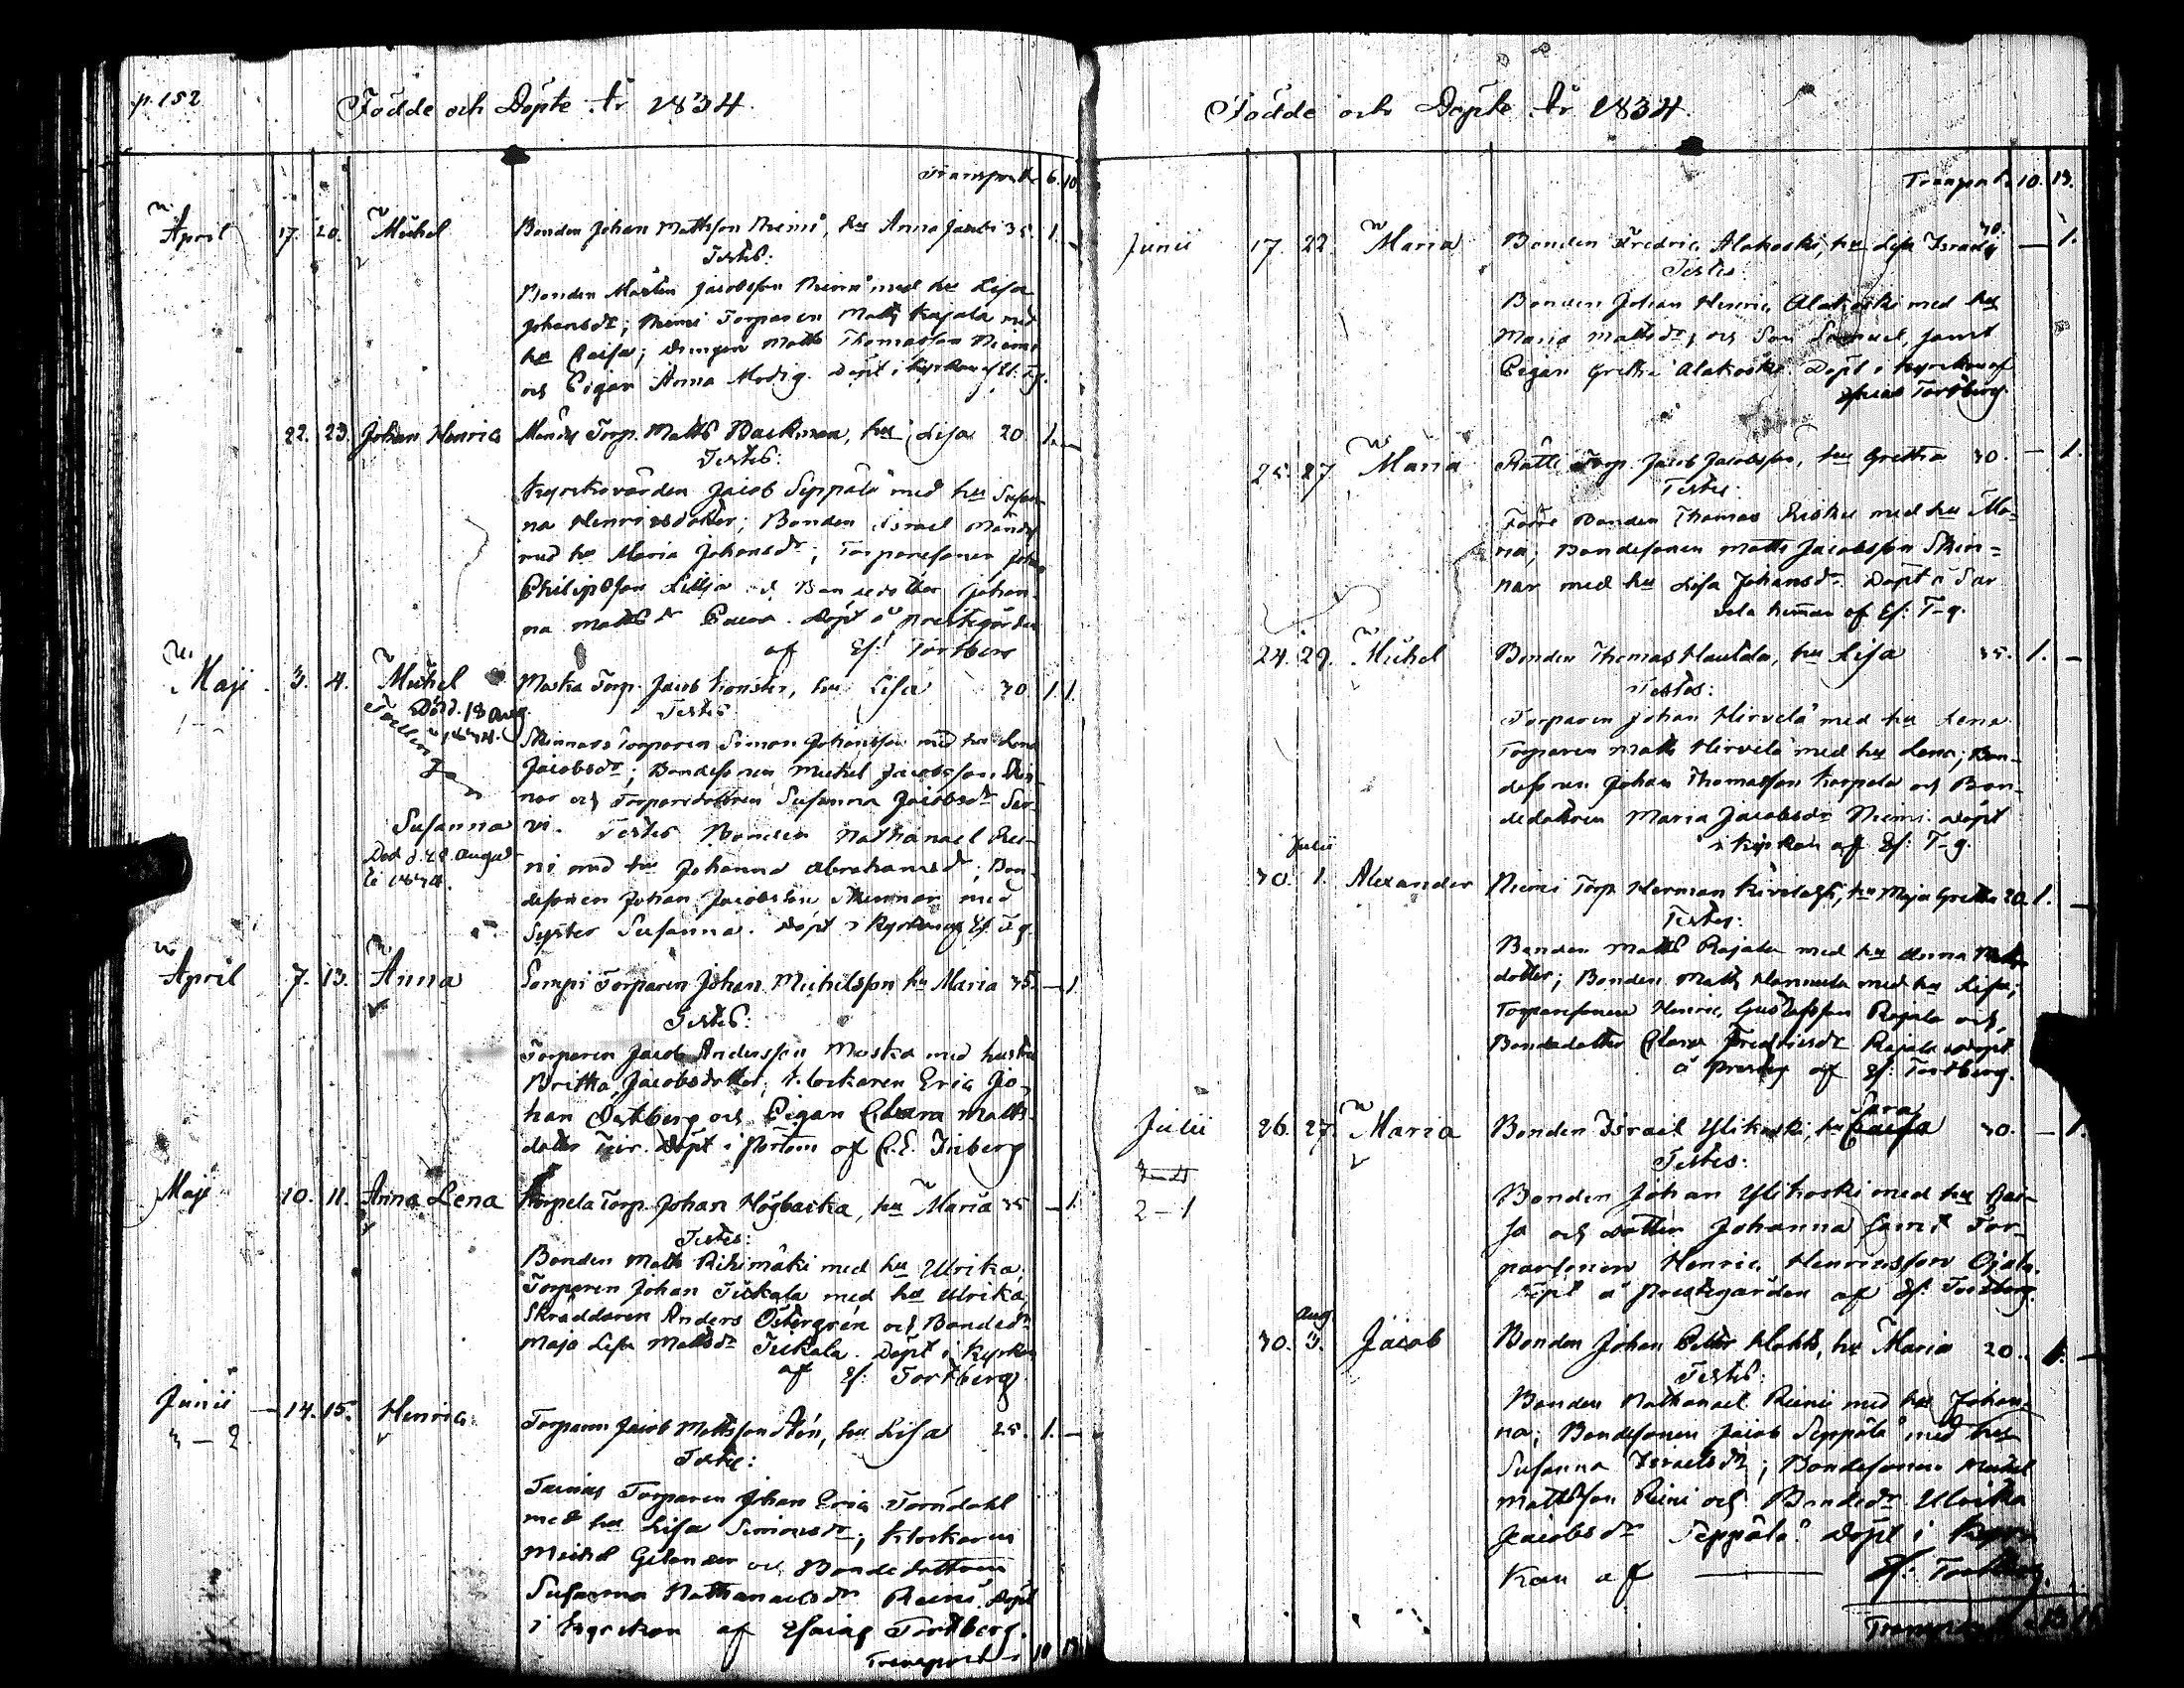 p. 152
Födde och Döpte År 1834.
Transport 6. 10
April 17. 20. Michel Bonden Johan Mattsson Niemi, hu Anna Jacobs 35. 1. –
Testes:
Bonden Mårten Jacobsson Niemi med hu Lisa
Johansdr; Niemi Torparen Matts Kajala med
hu Caisa; Drengen Matts Thomasson Niemi
och Pigan Anna Modig. Döpt i kyrkan af Ef. T-g.
22. 23. Johan Henric Månds Torp. Matts Backman, hu Lisa 20. 1. –
Testes:
Kyrkovärden Jacob Seppälä med hu Susan-
na Henricsdotter; Bonden Israel Månds
med hu Maria Johansdr; Torparesonen Johan
Philipsson Lillja och Bondedotter Johan-
na Mattsdr. Döpt å prestegården
af Es: Tortberg
Maji 3. 4. Michel Maska Torp. Jacob, hu Lisa 30. 1. 1.
Död. 18 Aug.
1834.
Testes
Skinnars Torparen Simon Johansson med hu Lena
Jacobsdr; Bondesonen Michel Jacobsson Skin-
nar och Torparedottren Susanna Jacobsdr Sar-
Susanna vi. Testes Bonden Nathanael Rei-
Död d. 28 Augus-
ti 1834.
ni med hu Johanna Abrahamsdr; Bon-
desonen Johan Jacobsson Skinnar med
Syster Susanna. Döpt i Kyrkan af Es. T-g.
April 7. 13. Anna Sompi Torparen Johan Michelsson hu Maria 35. – 1.
Testes:
Torparen Jacob Andersson Maska med hustru
Britha Jacobsdotter; Klockaren Eric Jo-
han Östberg och Pigan Clara Matts-
dotter. Döpt i Portom af C. E. Inberg
Maji 10. 11. Anna Lena Korpela Torp. Johan Högbacka, hu Maria 35 – 1.
Testes:
Bonden Matts Rihimäki med hu Ulrika,
Torparen Johan Tiikala med hu Ulrika,
Skräddaren Anders Östergrén och Bondedr
Maja Lisa Mattsdr Tiikala. Döpt i kyrkan
af Es: Tortberg
Junii 14. 15. Henric Torparen Jacob Mattsson Stén, hu Lisa 25. 1. –
3 – 2
Testes:
Torparen Johan Eric Torndahl
med hu Lisa Simonsdr; Klockaren
Michel Gelander och Bondedottren
Susanna Nathanaelsdr Reini. Döpt
i kyrckan af Esaias Tortberg.
Transport 10 13
Födde och Döpte År 1834.
Transport 10. 13.
Junii 17. 22. Maria Bonden Fredric Alakoski, hu Lisa Israels 30. – 1.
Testes:
Bonden Johan Henric Alakoski med hu
Maria Mattsdr, och Son Samuel, samt
Pigan Gretha Alakoski. Döpt i kyrckan af
Esaias Tortberg.
25. 27. Maria Rätti Torp. Jacob Jacobsson, hu Gretha 30. – 1.
Testes:
Förre Bonden Thomas Risku med hu Ma-
ria; Bondesonen Matts Jacobsson Skin-
nar med hu Lisa Johansdr. Döpt i Sar
vela hemman af Es: T-g.
24. 29. Michel Bonden Thomas Hautala, hu Lisa 35. 1. –
Testes:
Torparen Johan Hirvelä med hu Lena
Torparen Matts Hirvelä med hu Lena; Bon-
desonen Johan Thomasson Korpela och Bon-
dedottren Maria Jacobsdr Niemi. Döpt
i kyrkan af Es: T-g.
Julii
30. 1. Alexander Niemi Torp. Herman, hu Maja Gretha 20. 1. –
Testes:
Bonden Matts Rajala med hu Anna Matts
dotter; Bonden Matts Hannula med hu Lisa;
Torparesonen Henric Gustafsson Rajala och
Bondedotter Clara Fredricsdr Rajala. Döpt
å Presteg af Es: Tortberg.
Julii 26. 27. Maria Bonden Israel Ylikoski, hu Caisa Sara 30. – 1.
2 – 1
Testes:
Bonden Johan Ylikoski med hu Cai-
sa och dotter Johanna samt Tor-
paresonen Henric Henricsson Ojala.
Döpt å Prestegården af Es: Tortberg.
Aug.
30. 3. Jacob Bonden Johan Petter Klokk, hu Maria 20. 1. –
Testes:
Bonden Nathanael Reini med hu Johan-
na; Bondesonen Jacob Seppälä med hu
Susanna Israelsdr; Bondesonen Michel
Mattsson Reini och Bondedr Ulrika
Jacobsdr Seppälä. Döpt i kyr-
kan af Es: Tortberg.
Transport 13